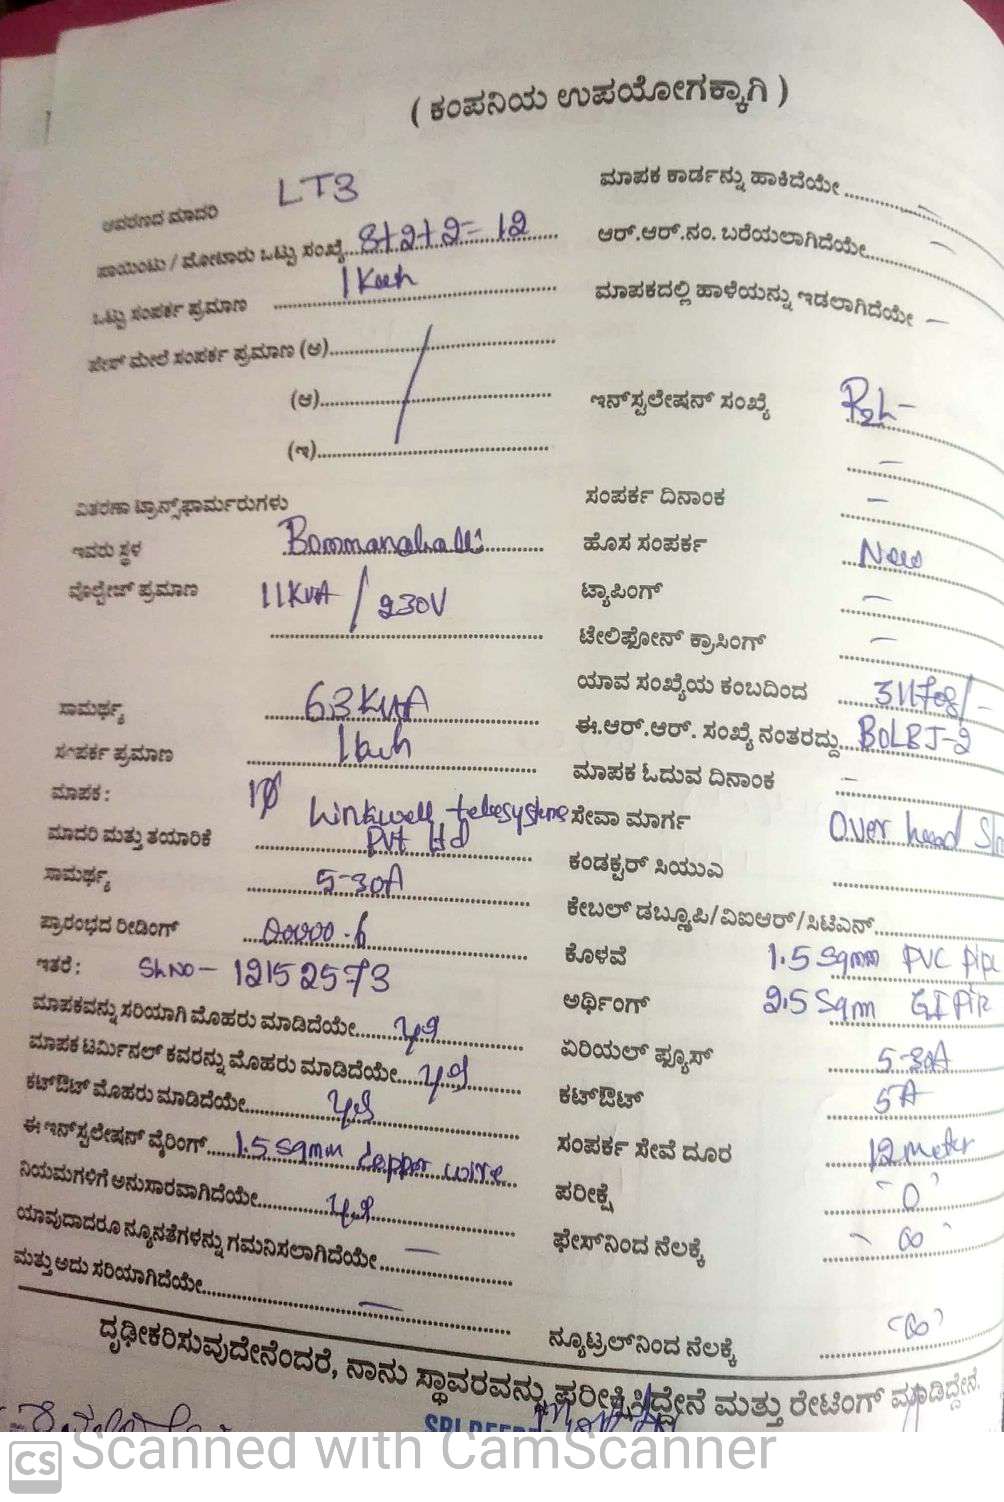 ( ಕಂಪನಿಯ ಉಪಯೋಗಕ್ಕಾಗಿ )
ಆವರಣದ ಮಾದರಿ LT3
ಪಾಯಿಂಟು / ಮೋಟಾರು ಒಟ್ಟು ಸಂಖ್ಯೆ... 8+2+2= 12
ಒಟ್ಟು ಸಂಪರ್ಕ ಪ್ರಮಾಣ 1
ಫೇಸ್ ಮೇಲೆ ಸಂಪರ್ಕ ಪ್ರಮಾಣ (ಅ)
(ಆ)
(ಇ)
ವಿತರಣಾ ಟ್ರಾನ್ಸ್‌ಫಾರ್ಮರುಗಳು
ಇವರು ಸ್ಥಳ Bommanahalli
ವೊಲ್ಟೇಜ್ ಪ್ರಮಾಣ 11KVA / 230V
ಸಾಮರ್ಥ್ಯ 63KVA
ಸಂಪರ್ಕ ಪ್ರಮಾಣ
ಮಾಪಕ : 1ø
ಮಾದರಿ ಮತ್ತು ತಯಾರಿಕೆ Linkwell telesystems Pvt ltd
ಸಾಮರ್ಥ್ಯ 5-30A
ಪ್ರಾರಂಭದ ರೀಡಿಂಗ್ 00000.6
ಇತರೆ : Sl.No - 12152573
ಮಾಪಕವನ್ನು ಸರಿಯಾಗಿ ಮೊಹರು ಮಾಡಿದೆಯೇ.... yes
ಮಾಪಕ ಟರ್ಮಿನಲ್ ಕವರನ್ನು ಮೊಹರು ಮಾಡಿದೆಯೇ.... yes
ಕಟ್‌ಔಟ್ ಮೊಹರು ಮಾಡಿದೆಯೇ.... yes
ಈ ಇನ್‌ಸ್ಟಲೇಷನ್ ವೈರಿಂಗ್.... 1.5 sqmm copper wire
ನಿಯಮಗಳಿಗೆ ಅನುಸಾರವಾಗಿದೆಯೇ.... yes
ಯಾವುದಾದರೂ ನ್ಯೂನತೆಗಳನ್ನು ಗಮನಿಸಲಾಗಿದೆಯೇ —
ಮತ್ತು ಅದು ಸರಿಯಾಗಿದೆಯೇ.... —
ಮಾಪಕ ಕಾರ್ಡನ್ನು ಹಾಕಿದೆಯೇ .... —
ಆರ್.ಆರ್.ನಂ. ಬರೆಯಲಾಗಿದೆಯೇ.... —
ಮಾಪಕದಲ್ಲಿ ಹಾಳೆಯನ್ನು ಇಡಲಾಗಿದೆಯೇ —
ಇನ್‌ಸ್ಟಲೇಷನ್ ಸಂಖ್ಯೆ
—
ಸಂಪರ್ಕ ದಿನಾಂಕ —
ಹೊಸ ಸಂಪರ್ಕ New
ಟ್ಯಾಪಿಂಗ್ —
ಟೇಲಿಫೋನ್ ಕ್ರಾಸಿಂಗ್ —
ಯಾವ ಸಂಖ್ಯೆಯ ಕಂಬದಿಂದ
ಈ.ಆರ್.ಆರ್. ಸಂಖ್ಯೆ ನಂತರದ್ದು.... BOLBJ-2
ಮಾಪಕ ಓದುವ ದಿನಾಂಕ —
ಸೇವಾ ಮಾರ್ಗ Over head
ಕಂಡಕ್ಟರ್ ಸಿಯುಎ
ಕೇಬಲ್ ಡಬ್ಲ್ಯೂಪಿ/ವಿಐಆರ್/ಸಿಟಿಎನ್
ಕೊಳವೆ 1.5 sqmm PVC pipe
ಅರ್ಥಿಂಗ್ 2.5 Sqm GI
ಏರಿಯಲ್ ಫ್ಯೂಸ್ 5-30A
ಕಟ್‌ಔಟ್ 5A
ಸಂಪರ್ಕ ಸೇವೆ ದೂರ 12 meter
ಪರೀಕ್ಷೆ '0'
ಫೇಸ್‌ನಿಂದ ನೆಲಕ್ಕೆ ∞
ನ್ಯೂಟ್ರಲ್‌ನಿಂದ ನೆಲಕ್ಕೆ '∞'
ದೃಢೀಕರಿಸುವುದೇನೆಂದರೆ, ನಾನು ಸ್ಥಾವರವನ್ನು ಪರೀಕ್ಷಿಸಿದ್ದೇನೆ ಮತ್ತು ರೇಟಿಂಗ್ ಮಾಡಿದ್ದೇನೆ.
CS Scanned with CamScanner